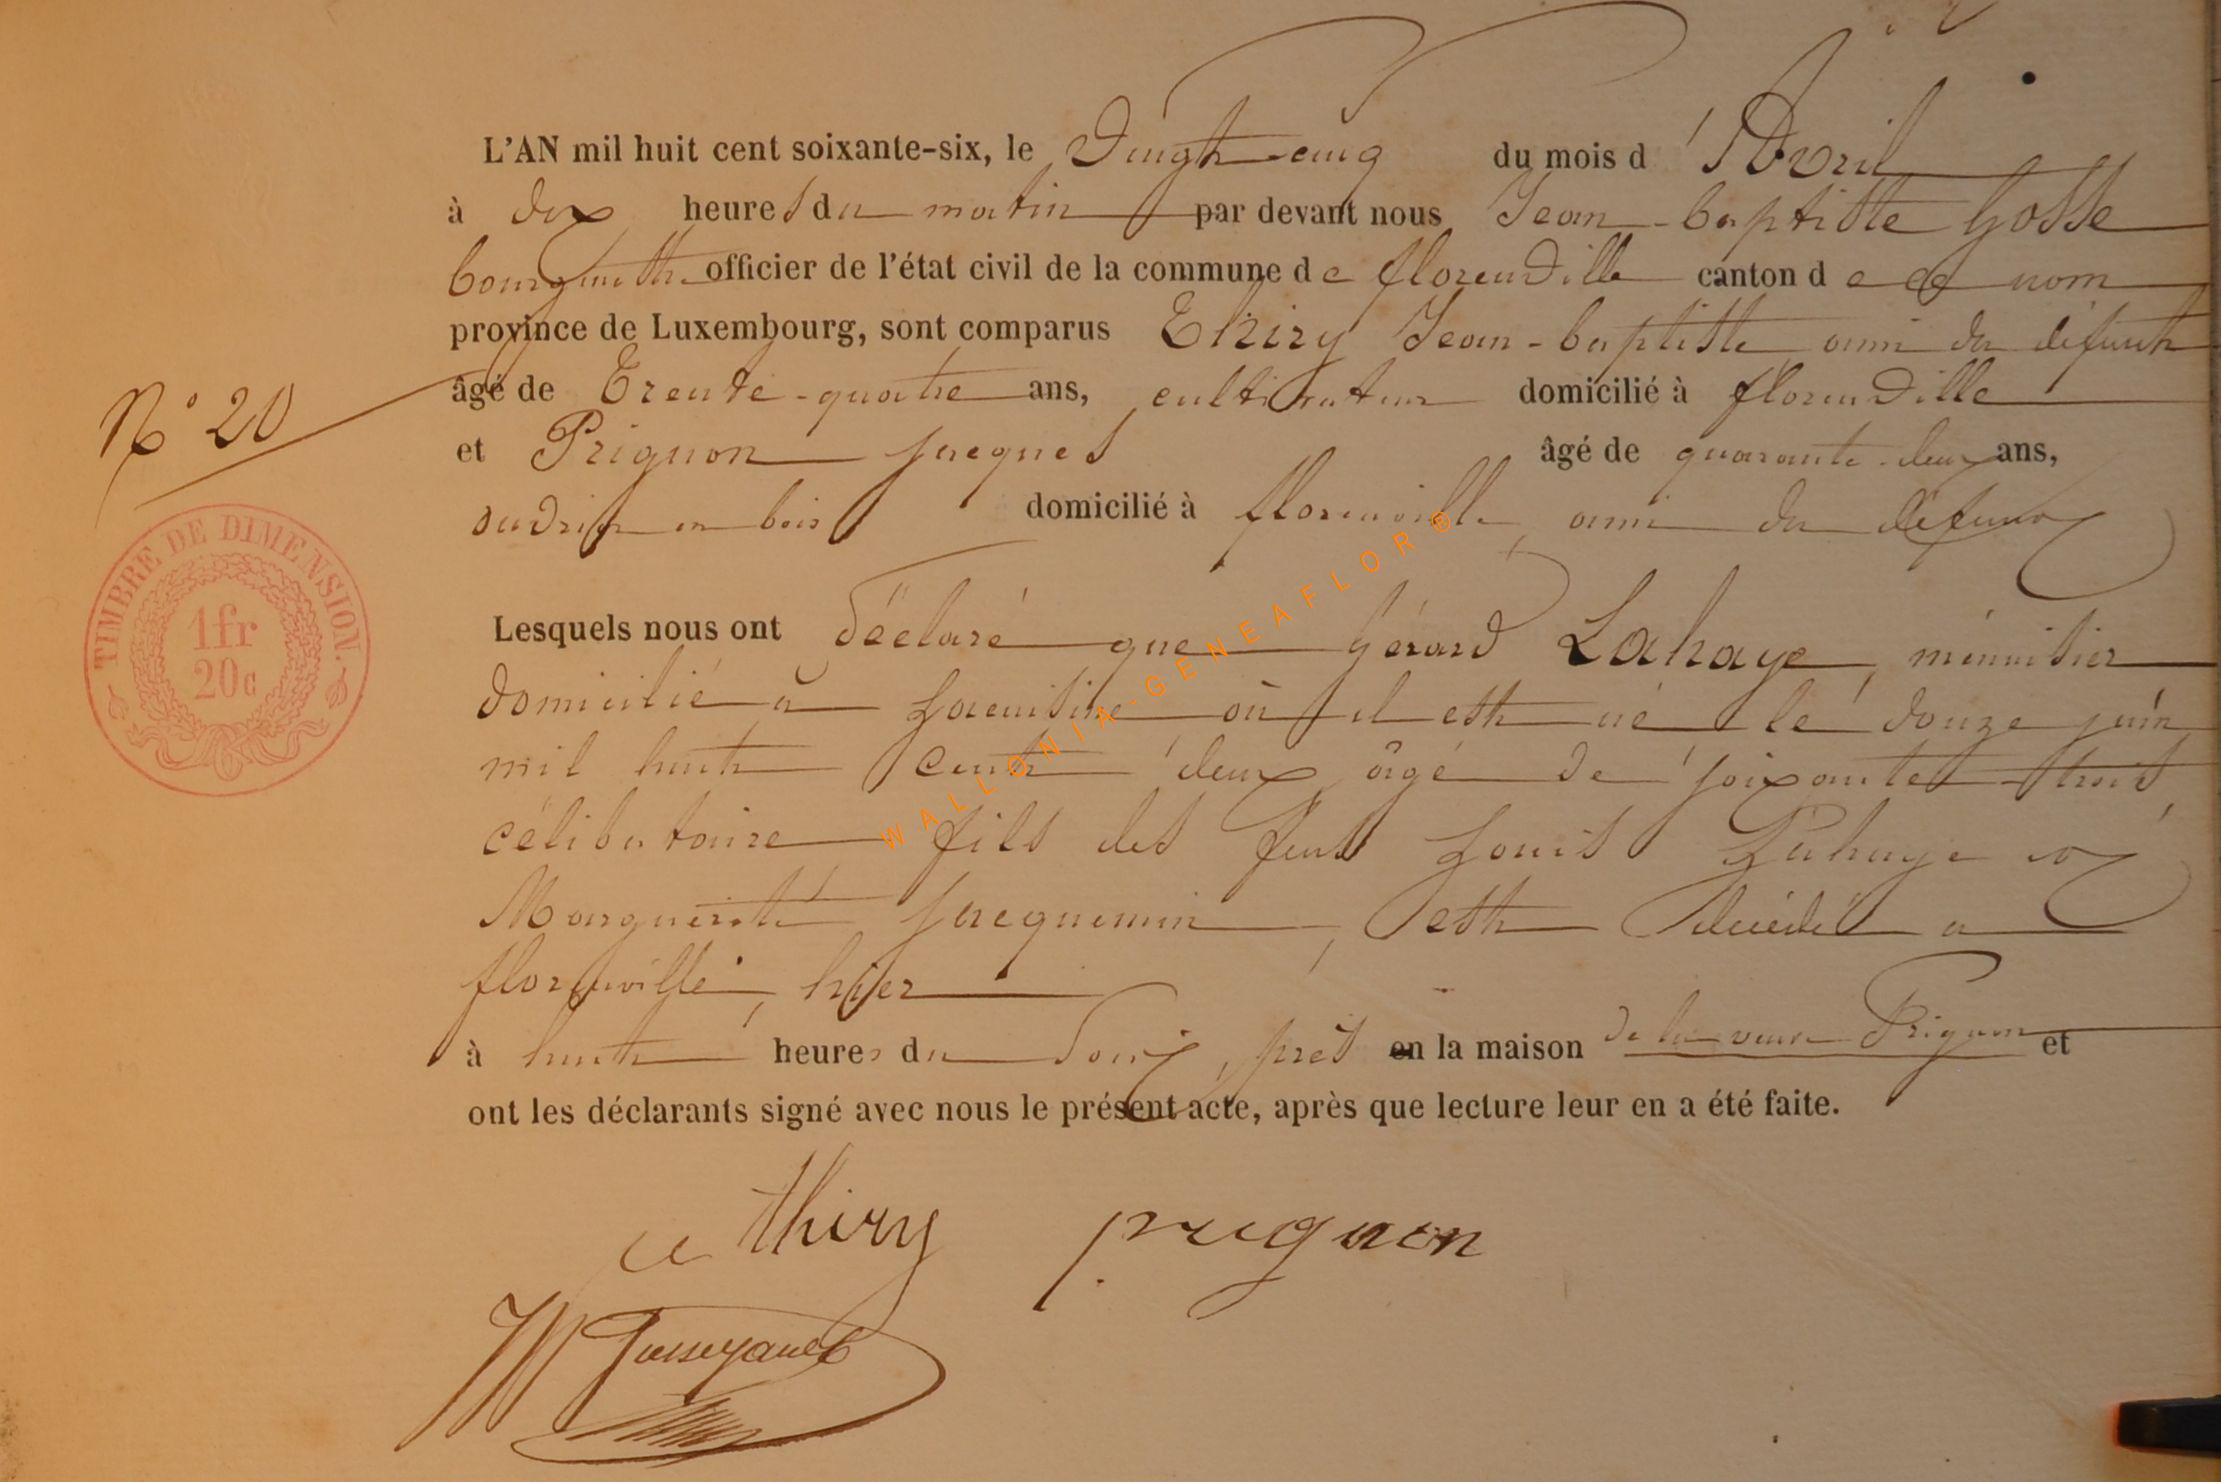 L'AN mil huit cent soixante-six, le Vingt-cinq du mois d'Avril
à dix heures du matin par devant nous Jean-baptiste Gosse
bourgmestre officier de l'état civil de la commune de florenville canton de ce nom
province de Luxembourg, sont comparus Thiry Jean-baptiste ami du défunt
âgé de Trente-quatre ans, cultivateur domicilié à florenville
N° 20
et Prignon jacques âgé de quarante-deux ans,
ouvrier en bois domicilié à florenville, ami du défunt
TIMBRE DE DIMENSION.
1fr
20c
Lesquels nous ont déclaré que Gérard Lahaye, ménuisier
domicilié à où il est né le douze juin
mil huit cent deux, âgé de soixante-trois,
célibataire fils des feus Louis Lahaye et
Marguerite jacquemin, est décédé a
florenville, hier
à huit heures du soir, près en la maison de la veuve Prignon et
ont les déclarants signé avec nous le présent acte, après que lecture leur en a été faite.
thiry prignon
WALLONIA-GENEAFLOR®